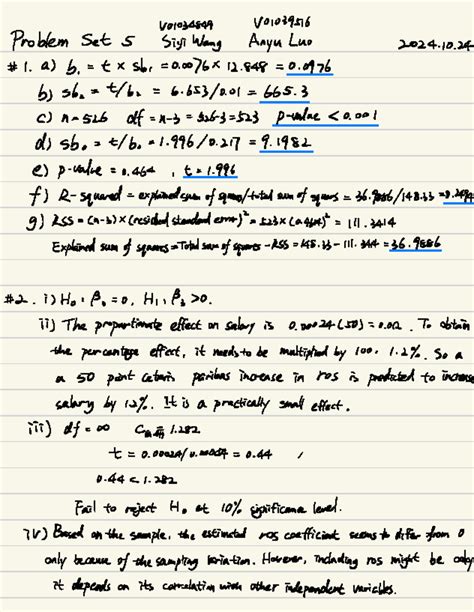 V01034849 V01039516
Problem Set 5 Siyi Wang Anyu Luo 2024.10.24
#1. a) b₁ = t × sb₁ = 0.0076 × 12.848 = 0.0976
b) sb₀ = t/b₂ = 6.653/0.01 = 665.3
c) n=526 df = n-3 = 526-3=523 p-value < 0.001
d) sb₀ = t/b₀ = 1.996/0.217 = 9.1982
e) p-value = 0.464 , t = 1.996
f) R-squared = explained sum of squares/total sum of squares = 36.9886/148.33 =
g) RSS = (n-3) × (residual standard error)² = 523 × (0.464)² = 111.3414
Explained sum of squares = Total sum of squares - RSS = 148.33 - 111.344 = 36.9886
#2. i) H₀ : β₃ = 0, H₁ : β₃ > 0.
ii) The proportionate effect on salary is 0.00024(50) = 0.012. To obtain
the percentage effect, it needs to be multiplied by 100. 1.2%. So a
a 50 point ceteris paribus increase in ros is predicted to increase
salary by 1.2%. It is a practically small effect.
iii) df = ∞ 1.282
t = 0.00024/0.00054 = 0.44
0.44 < 1.282
Fail to reject H₀ at 10% significance level.
iv) Based on the sample, the estimated ros coefficient seems to differ from 0
only because of the sampling variation. However, including ros might be
it depends on its correlation with other independent variables.